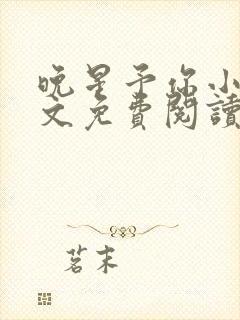 晚星予你小
文免費閱讀
茗末